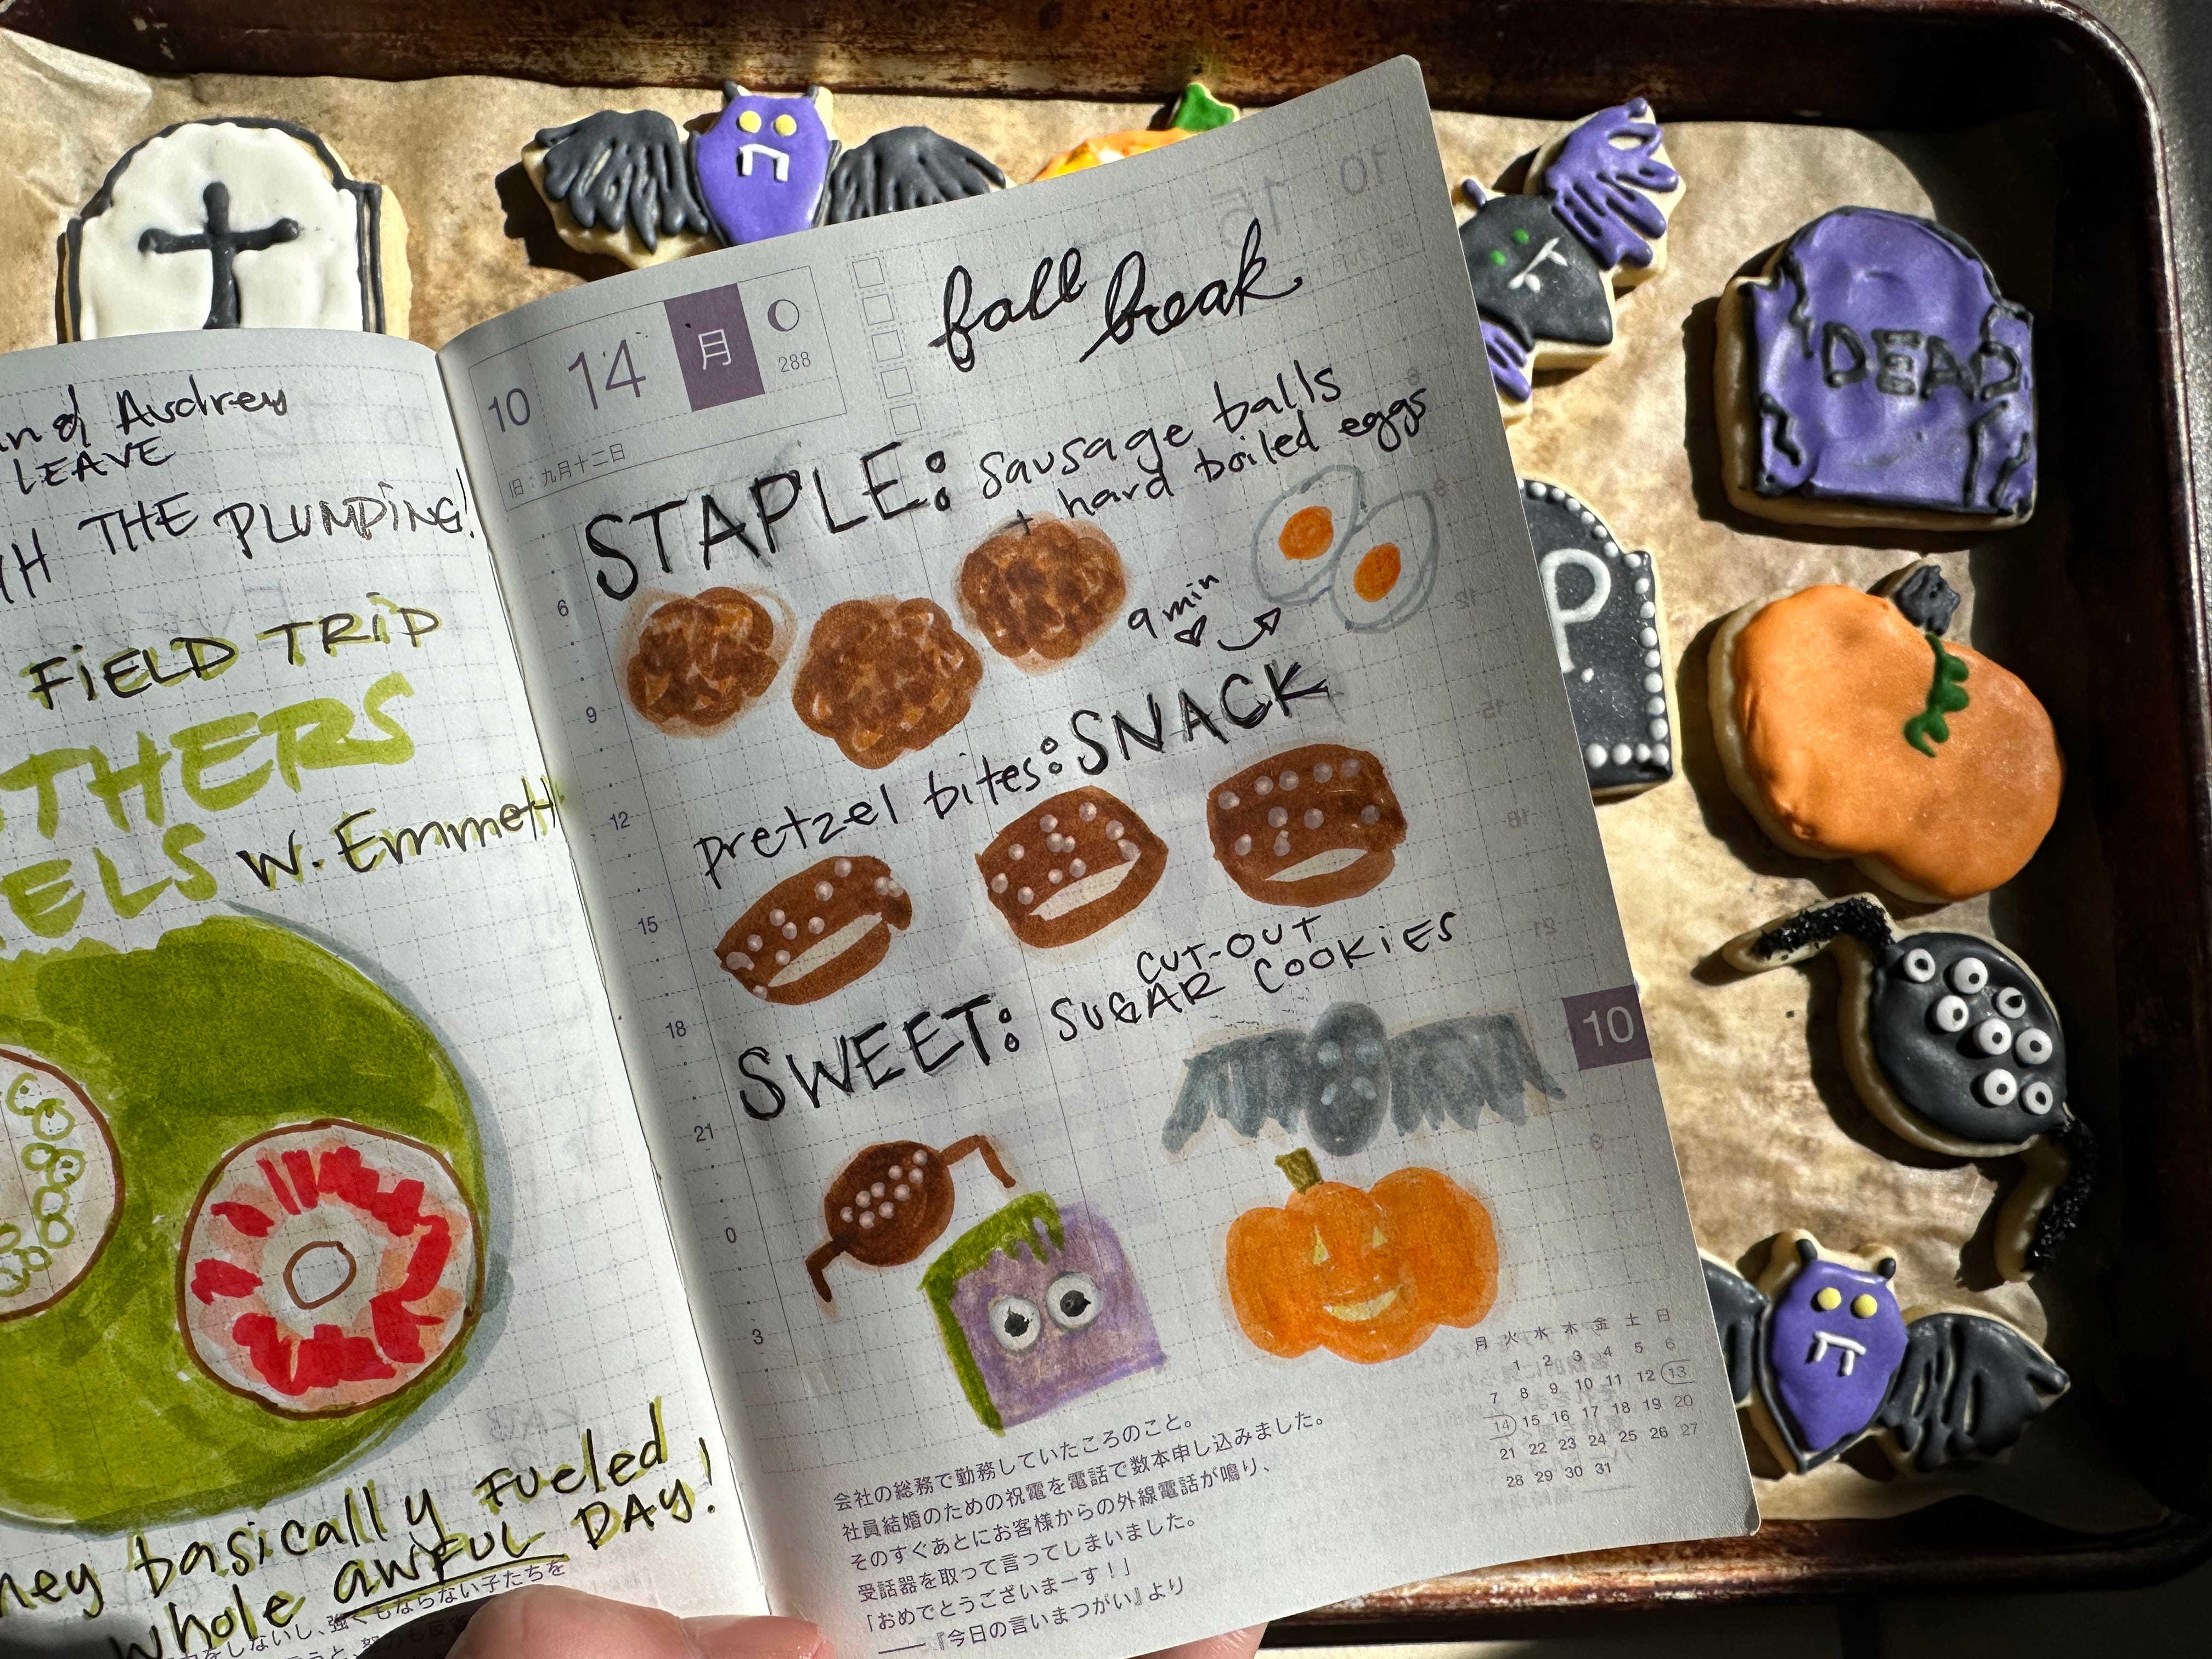 and Audrey
LEAVE
THE PLUMPING!
FIELD TRIP
W. Emmett
basically fueled
whole awful DAY!
強くもならない子たちを
10 14 月 288
旧：九月十二日
fall
break
STAPLE: sausage balls
+ hard boiled eggs
9 min
pretzel bites: SNACK
SWEET: CUT-OUT
SUGAR COOKIES
6
9
12
15
18
21
0
3
10
月 火 水 木 金 土 日
1 2 3 4 5 6
7 8 9 10 11 12 13
14 15 16 17 18 19 20
21 22 23 24 25 26 27
28 29 30 31
会社の総務で勤務していたころのこと。
社員結婚のための祝電を電話で数本申し込みました。
そのすぐあとにお客様からの外線電話が鳴り、
受話器を取って言ってしまいました。
「おめでとうございまーす！」
——『今日の言いまつがい』より
DEAD
P.